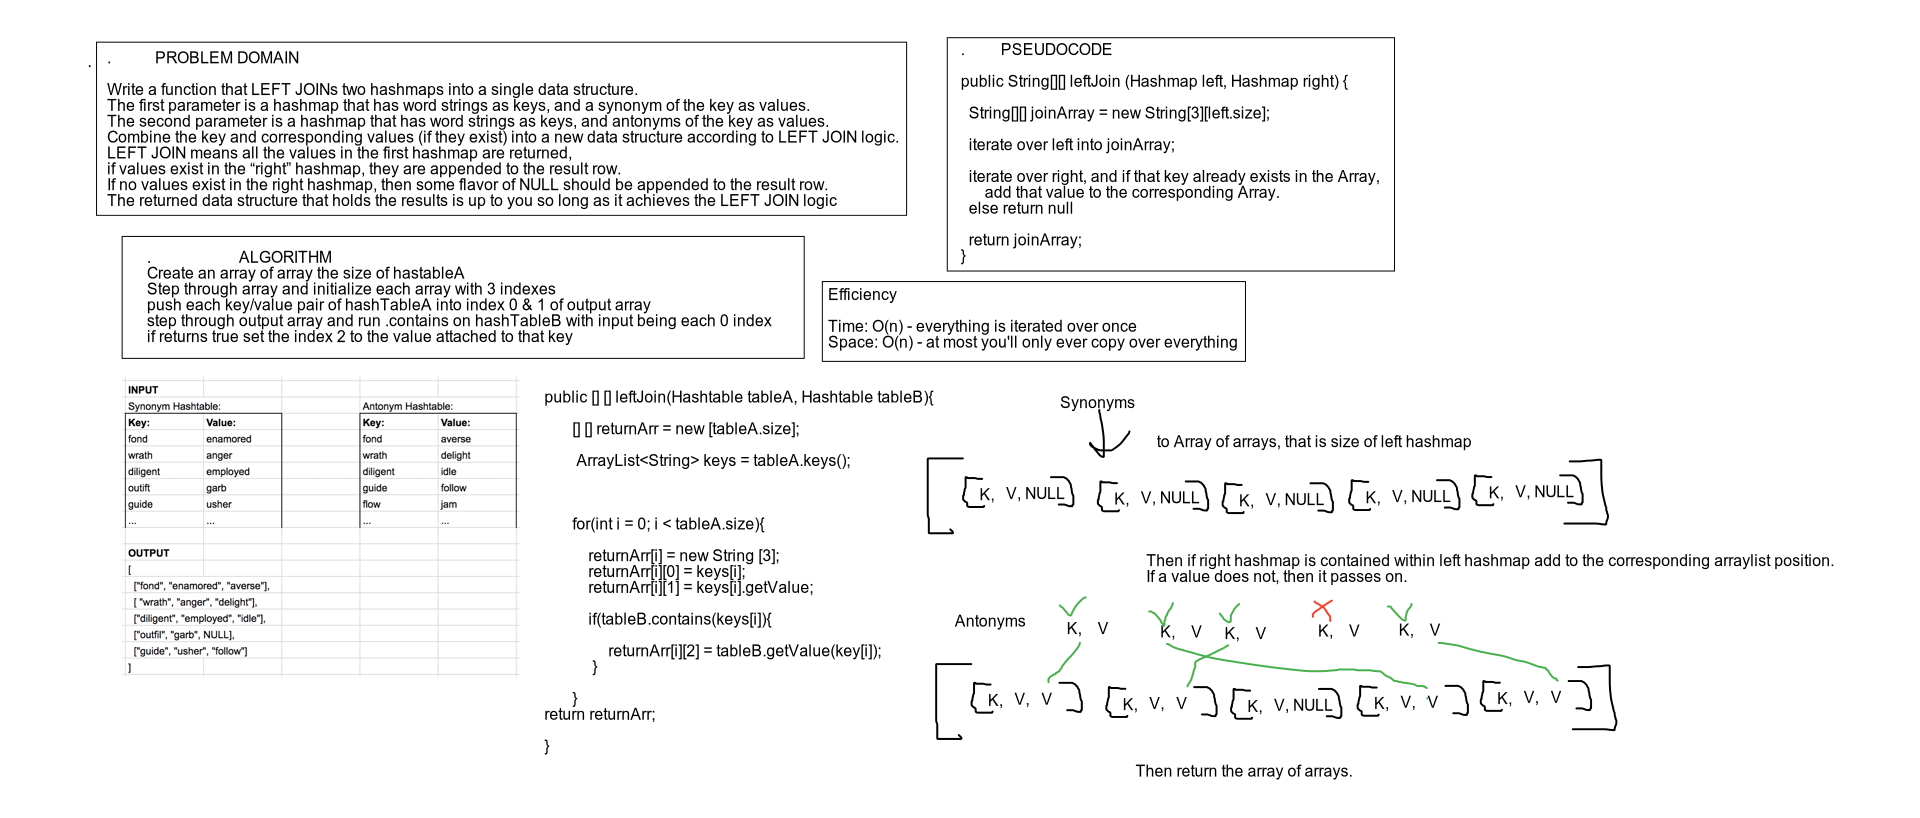 . PROBLEM DOMAIN
.
Write a function that LEFT JOINs two hashmaps into a single data structure.
The first parameter is a hashmap that has word strings as keys, and a synonym of the key as values.
The second parameter is a hashmap that has word strings as keys, and antonyms of the key as values.
Combine the key and corresponding values (if they exist) into a new data structure according to LEFT JOIN logic.
LEFT JOIN means all the values in the first hashmap are returned,
if values exist in the “right” hashmap, they are appended to the result row.
If no values exist in the right hashmap, then some flavor of NULL should be appended to the result row.
The returned data structure that holds the results is up to you so long as it achieves the LEFT JOIN logic
. PSEUDOCODE
public String[][] leftJoin (Hashmap left, Hashmap right) {
String[][] joinArray = new String[3][left.size];
iterate over left into joinArray;
iterate over right, and if that key already exists in the Array,
add that value to the corresponding Array.
else return null
return joinArray;
}
. ALGORITHM
Create an array of array the size of hastableA
Step through array and initialize each array with 3 indexes
push each key/value pair of hashTableA into index 0 & 1 of output array
step through output array and run .contains on hashTableB with input being each 0 index
if returns true set the index 2 to the value attached to that key
Efficiency
Time: O(n) - everything is iterated over once
Space: O(n) - at most you'll only ever copy over everything
INPUT
Synonym Hashtable: Antonym Hashtable:
Key: Value: Key: Value:
fond enamored fond averse
wrath anger wrath delight
diligent employed diligent idle
outift garb guide follow
guide usher flow jam
... ... ... ...
OUTPUT
[
["fond", "enamored", "averse"],
[ "wrath", "anger", "delight"],
["diligent", "employed", "idle"],
["outfil", "garb", NULL],
["guide", "usher", "follow"]
]
public [] [] leftJoin(Hashtable tableA, Hashtable tableB){
[] [] returnArr = new [tableA.size];
ArrayList<String> keys = tableA.keys();
for(int i = 0; i < tableA.size){
returnArr[i] = new String [3];
returnArr[i][0] = keys[i];
returnArr[i][1] = keys[i].getValue;
if(tableB.contains(keys[i]){
returnArr[i][2] = tableB.getValue(key[i]);
}
}
return returnArr;
}
Synonyms
to Array of arrays, that is size of left hashmap
[ [K, V, NULL] [K, V, NULL] [K, V, NULL] [K, V, NULL] [K, V, NULL] ]
Then if right hashmap is contained within left hashmap add to the corresponding arraylist position.
If a value does not, then it passes on.
Antonyms K, V K, V K, V K, V K, V
[ [K, V, V] [K, V, V] [K, V, NULL] [K, V, V] [K, V, V] ]
Then return the array of arrays.